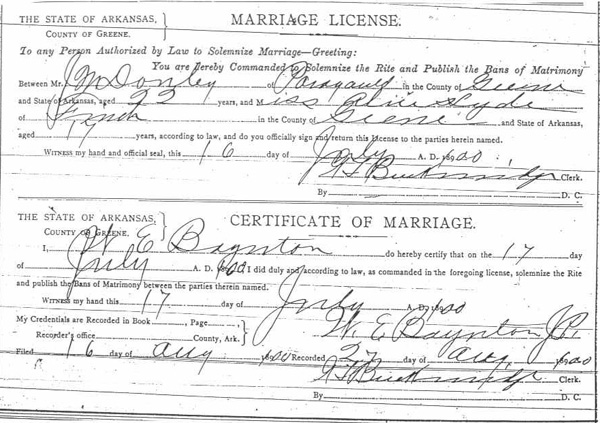 THE STATE OF ARKANSAS,
COUNTY OF GREENE.
MARRIAGE LICENSE.
To any Person Authorized by Law to Solemnize Marriage—Greeting:
You are hereby Commanded to Solemnize the Rite and Publish the Bans of Matrimony
Between Mr. J M Donley of Paragould in the County of Greene
and State of Arkansas, aged 22 years, and Miss Clyde
of Finch in the County of Greene and State of Arkansas,
aged 17 years, according to law, and do you officially sign and return this License to the parties herein named.
WITNESS my hand and official seal, this 16 day of July A. D. 1900
Clerk.
By D. C.
THE STATE OF ARKANSAS,
COUNTY OF GREENE.
CERTIFICATE OF MARRIAGE.
I, W E Baynton do hereby certify that on the 17 day
of July A. D. 1900 I did duly and according to law, as commanded in the foregoing license, solemnize the Rite
and publish the Bans of Matrimony between the parties therein named.
WITNESS my hand this 17 day of July A. D. 1900
My Credentials are Recorded in Book , Page , W. E. Baynton J.P.
Recorder's office County, Ark.
Filed 16 day of Aug 1900 Recorded 27 Aug, 1900
Clerk.
By D. C.